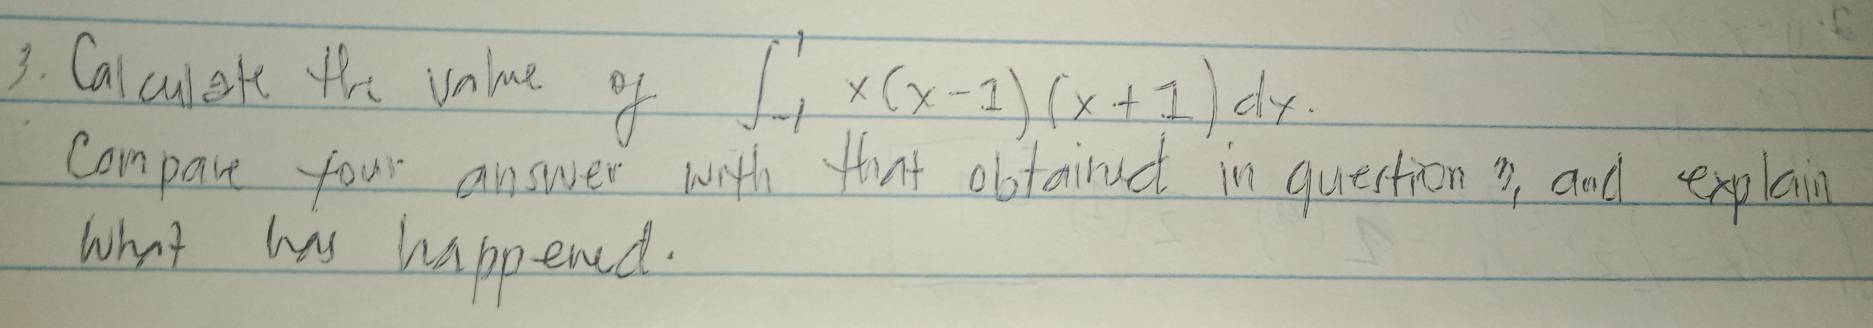 3. Calculate the value of ∫₋₁¹ x(x-1)(x+1)dx.
Compare your answer with that obtained in question , and explain
what has happened.